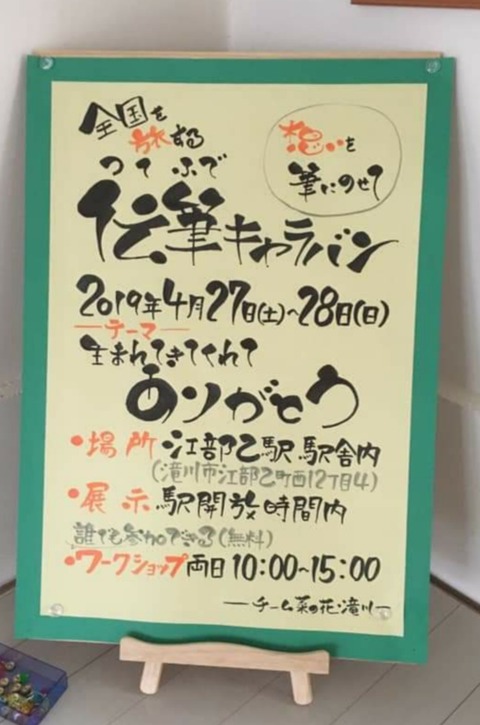 全国を
旅する
想いを
筆にのせて
つて ふで
伝筆キャラバン
2019年4月27日(土)~28日(日)
—テーマ—
生まれてきてくれて
ありがとう
・場所 江部乙駅 駅舎内
(滝川市江部乙町西12丁目4)
・展示 駅開放時間内
誰でも参加できる(無料)
・ワークショップ 両日10:00~15:00
—チーム菜の花・滝川—